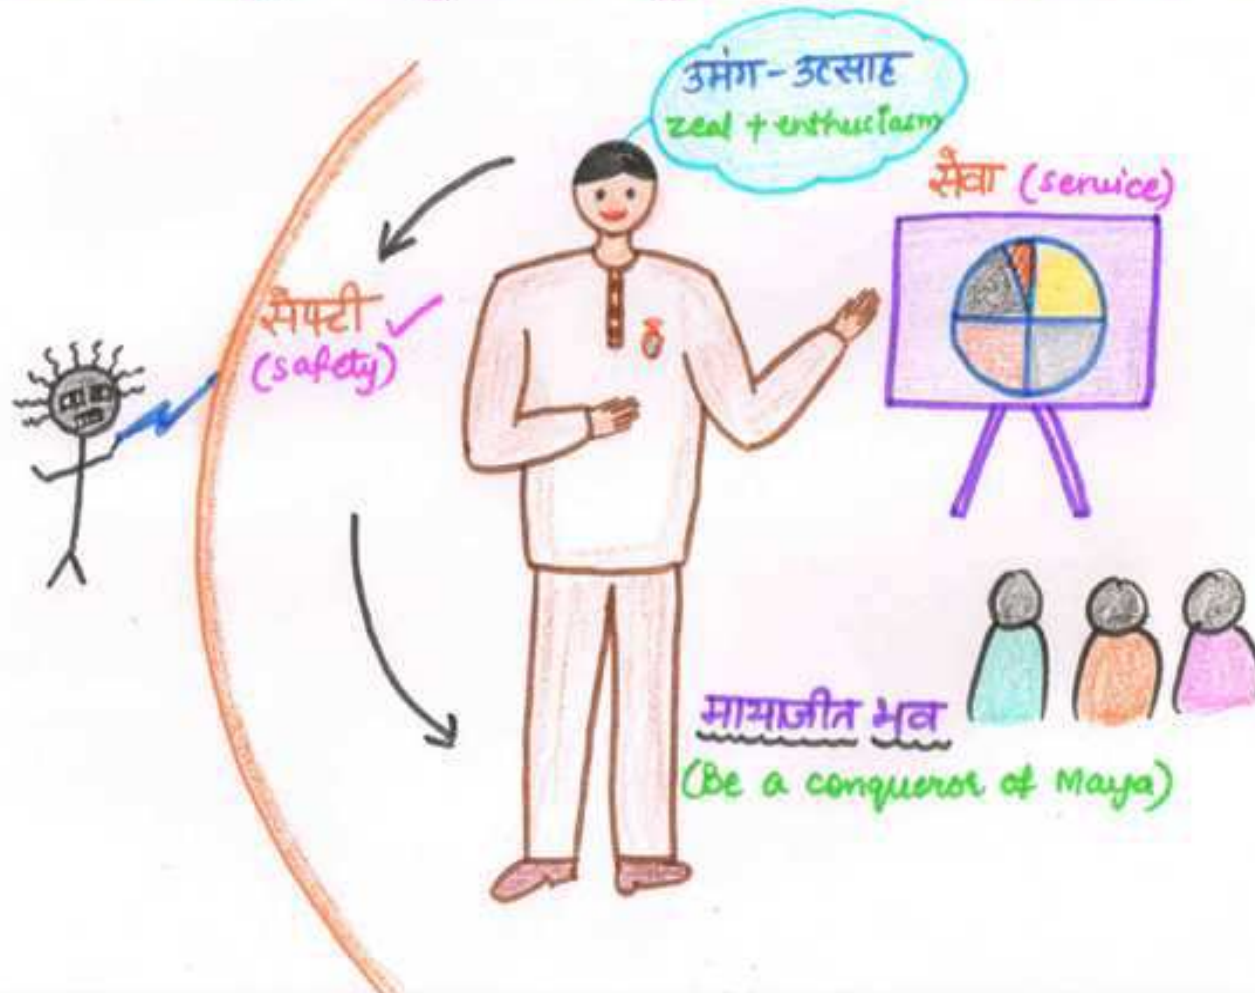 उमंग-उत्साह
zeal + enthuciasm
सेवा (service)
सेफ्टी
(safety)
मायाजीत भव
(Be a conqueror of Maya)